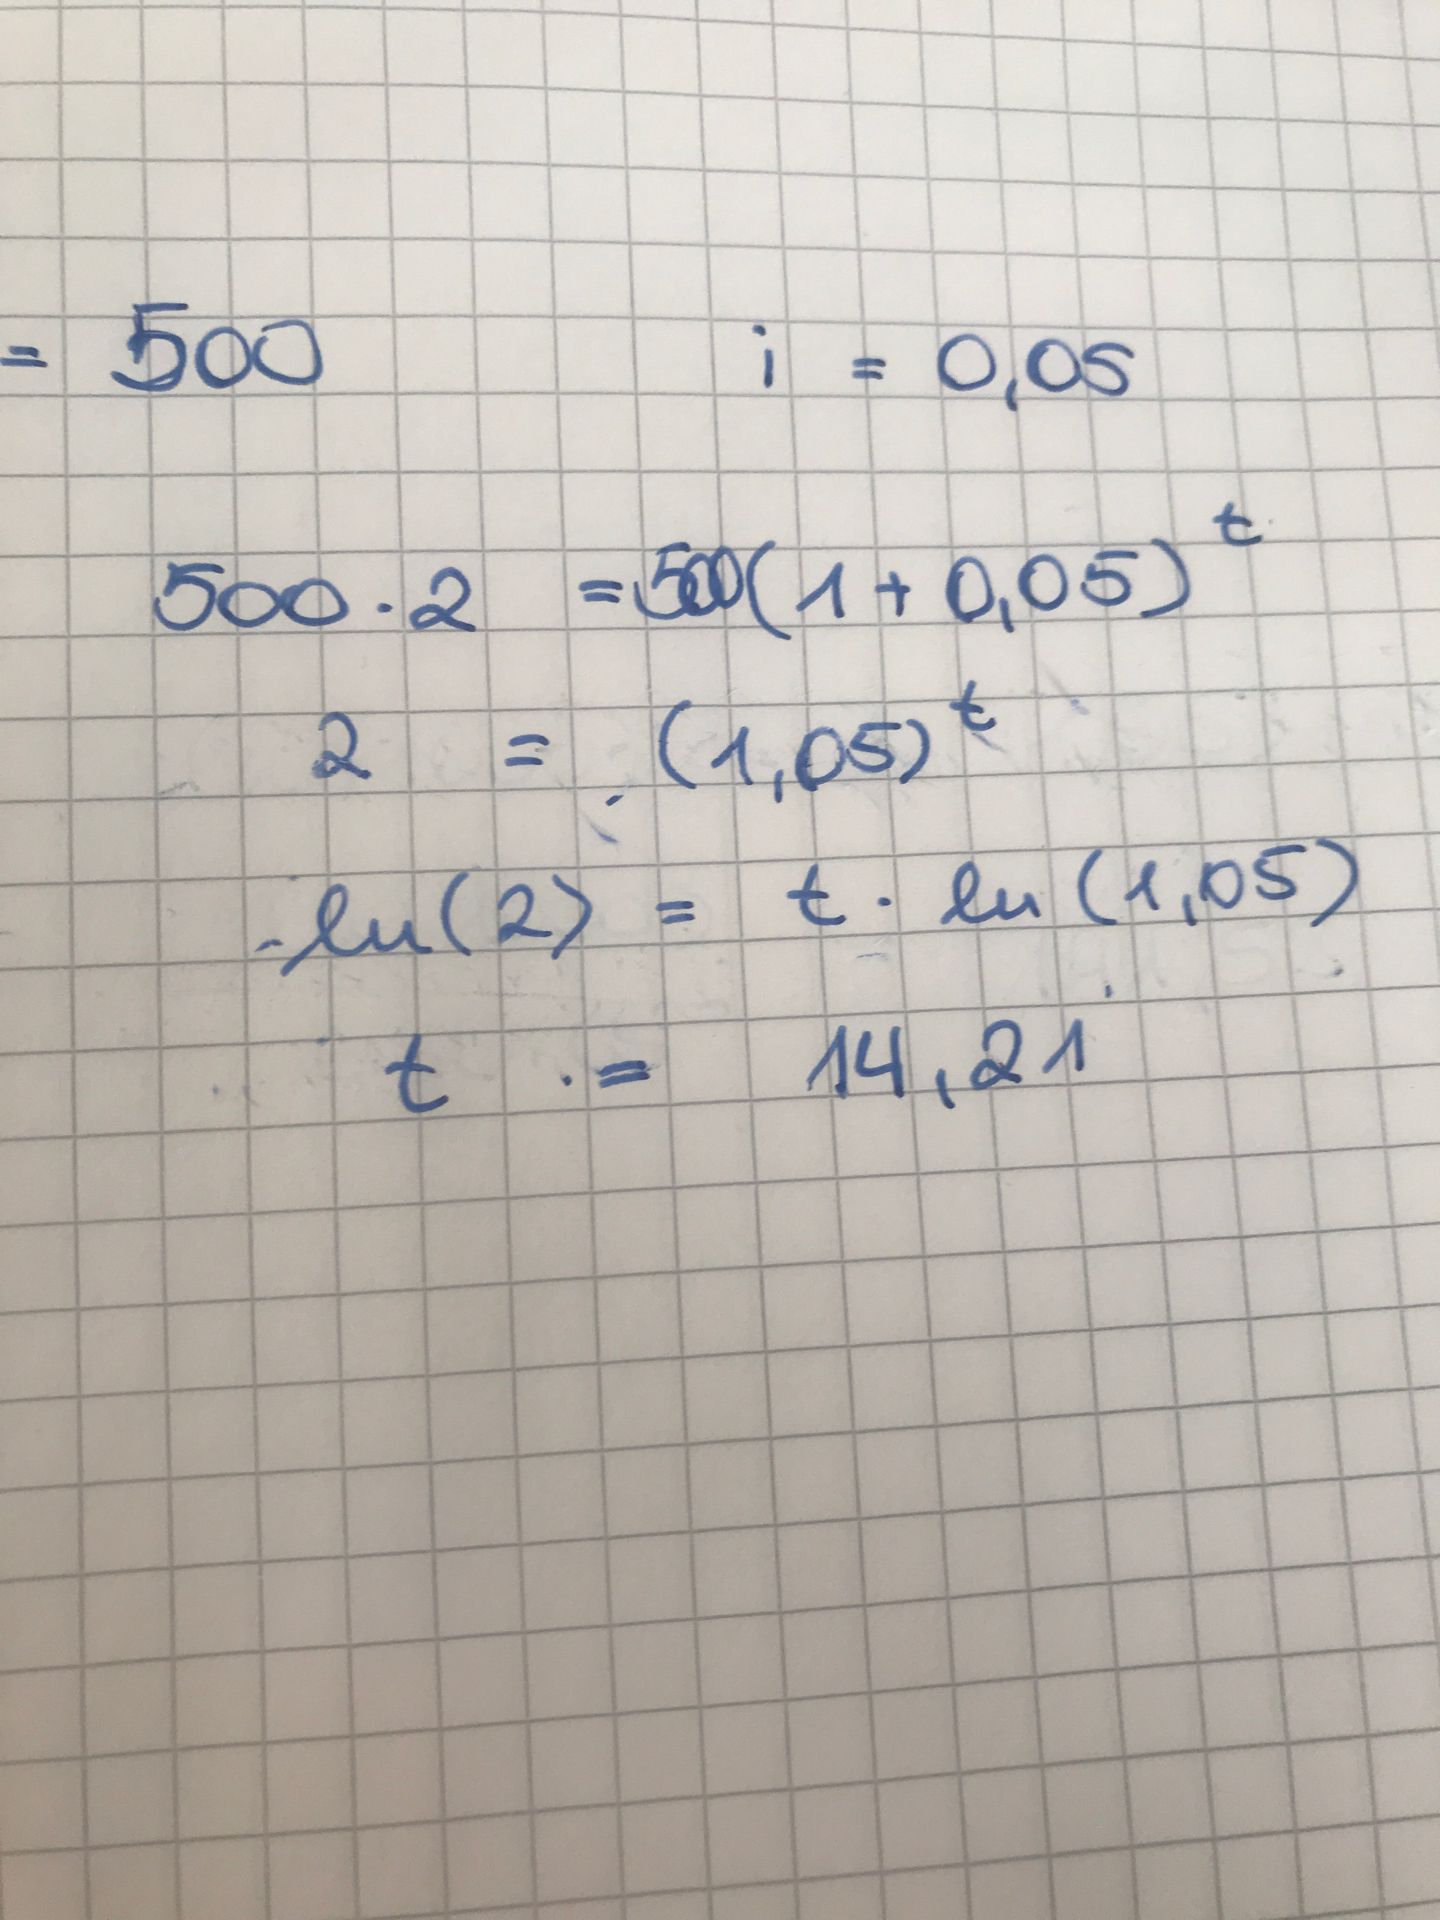 = 500 i = 0,05
500 · 2 = 500(1 + 0,05)^t
2 = (1,05)^t
ln(2) = t · ln(1,05)
t = 14,21